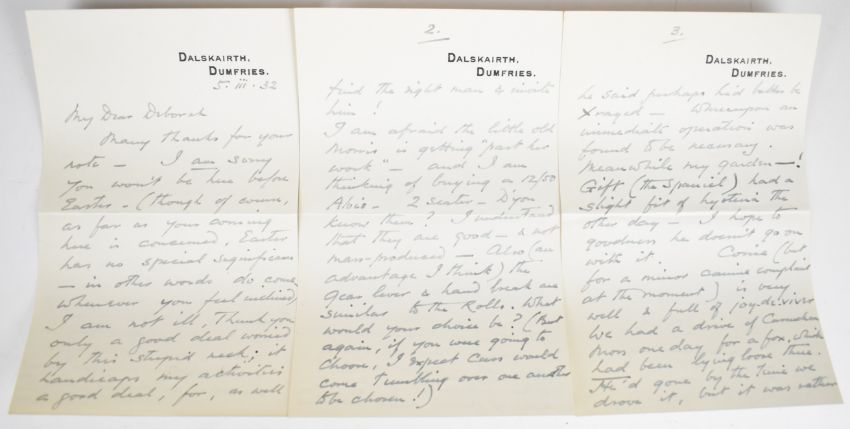 DALSKAIRTH,
DUMFRIES.
5. iii. 32
My Dear Deborah
Many thanks for your
note – I am sorry
you won't be here before
Easter – (though of course,
as far as your coming
here is concerned, Easter
has no special significance
– in other words do come
whenever you feel inclined)
I am not ill, thank you
only a good deal worried
by this stupid neck; it
handicaps my activities
a good deal, for, as well
2.
DALSKAIRTH,
DUMFRIES.
find the right man & invite
him!
I am afraid the little old
Morris is getting "past her
work" – and I am
thinking of buying a 12/50
Alvis – 2 seater – D'you
know them? I understand
that they are good – & not
mass-produced – Also (an
advantage I think) the
gear lever & hand break are
similar to the Rolls. What
would your choice be? (But
again, if you were going to
choose, I expect cars would
come tumbling over one another
to be chosen!)
3.
DALSKAIRTH,
DUMFRIES.
he said perhaps he'd better be
X rayed – whereupon an
immediate operation was
found to be necessary.
Meanwhile my garden – !
Gift (the Spaniel) had a
slight fit of hysteria the
other day – I hope to
goodness he doesn't go on
with it. (but
for a minor canine complaint
at the moment) is very
well & full of joy-de-vivre
We had a drive of
Moss one day for a fox, which
had been lying loose there.
He'd gone by the time we
drove it, but it was rather